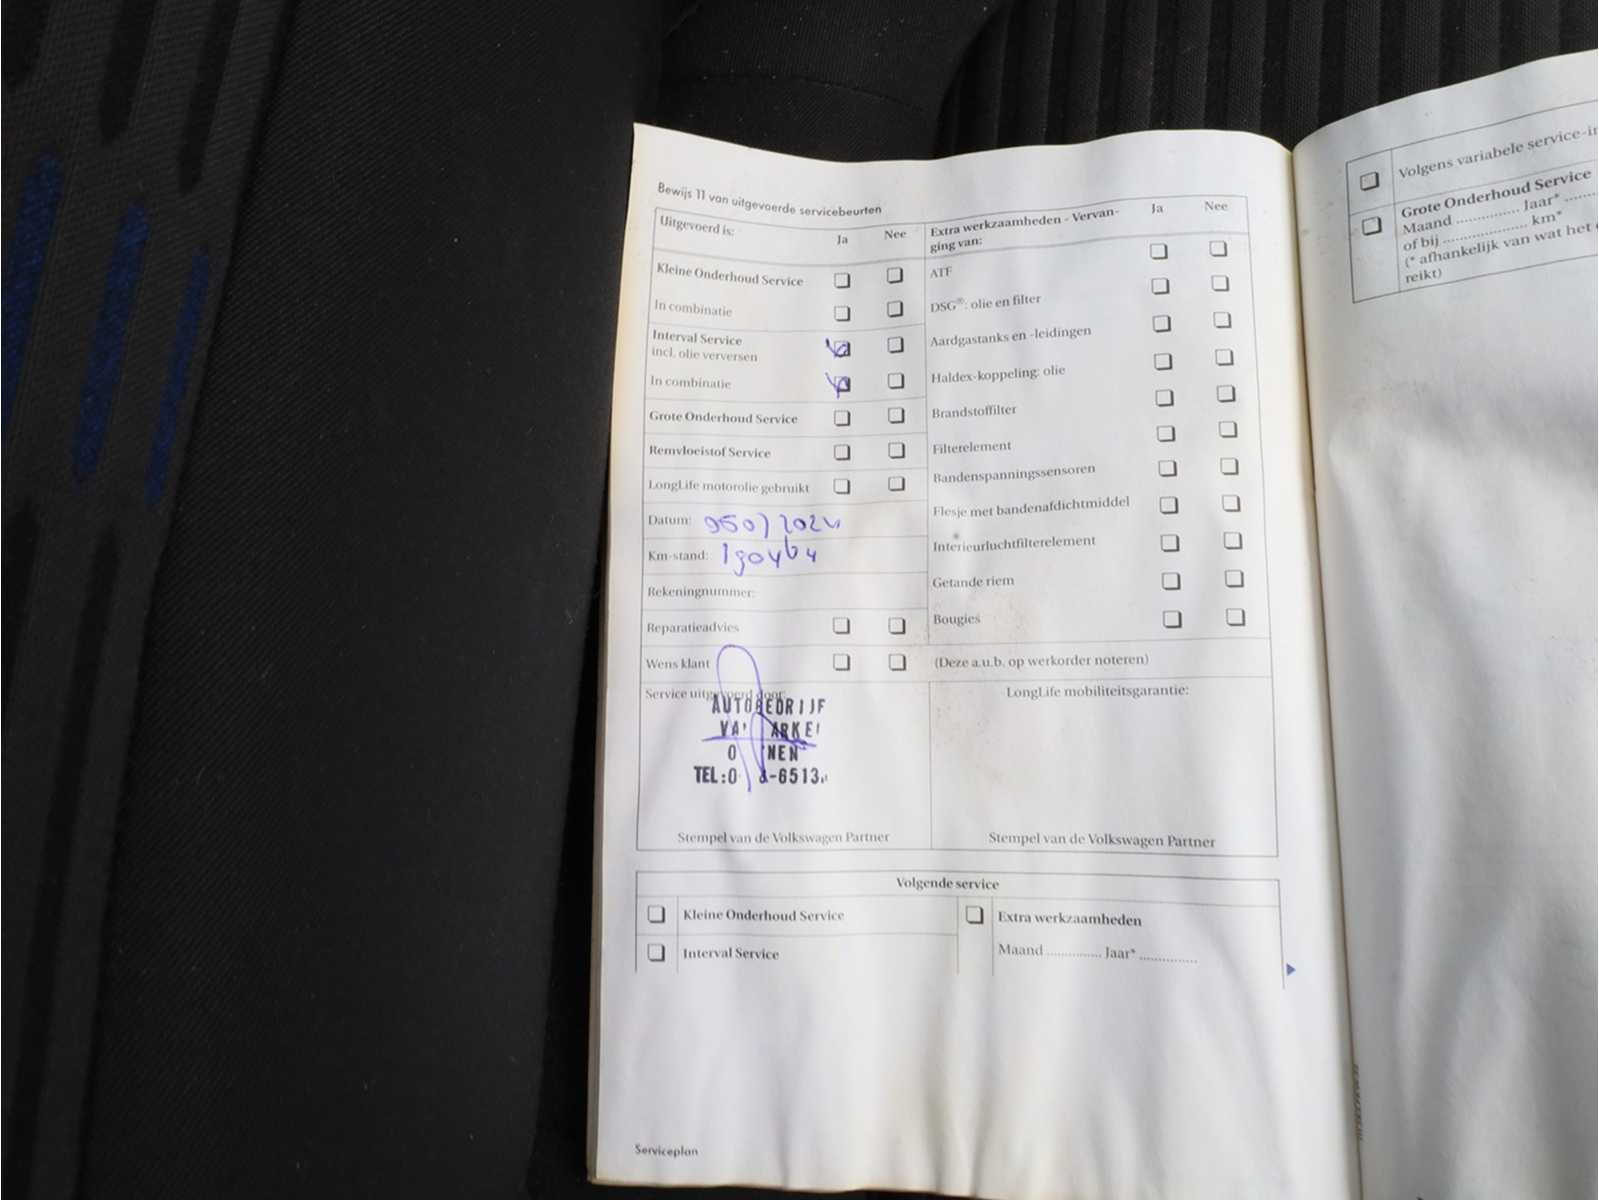 Bewijs 11 van uitgevoerde servicebeurten
Uitgevoerd is: Ja Nee
Kleine Onderhoud Service
In combinatie
Interval Service
incl. olie verversen
In combinatie
Grote Onderhoud Service
Remvloeistof Service
LongLife motorolie gebruikt
Datum:
Km-stand: 190464
Rekeningnummer:
Reparatieadvies
Wens klant
Service uitgevoerd door:
AUTOBEDRIJF
TEL:0
-6513
Stempel van de Volkswagen Partner
Extra werkzaamheden - Vervan- Ja Nee
ging van:
ATF
DSG®: olie en filter
Aardgastanks en -leidingen
Haldex-koppeling: olie
Brandstoffilter
Filterelement
Bandenspanningssensoren
Flesje met bandenafdichtmiddel
Interieurluchtfilterelement
Getande riem
Bougies
(Deze a.u.b. op werkorder noteren)
LongLife mobiliteitsgarantie:
Stempel van de Volkswagen Partner
Volgende service
Kleine Onderhoud Service
Interval Service
Extra werkzaamheden
Maand .............. Jaar* ..............
Serviceplan
Volgens variabele service-in
Grote Onderhoud Service
Maand ............... Jaar* ........
of bij .................... km*
(* afhankelijk van wat het
reikt)